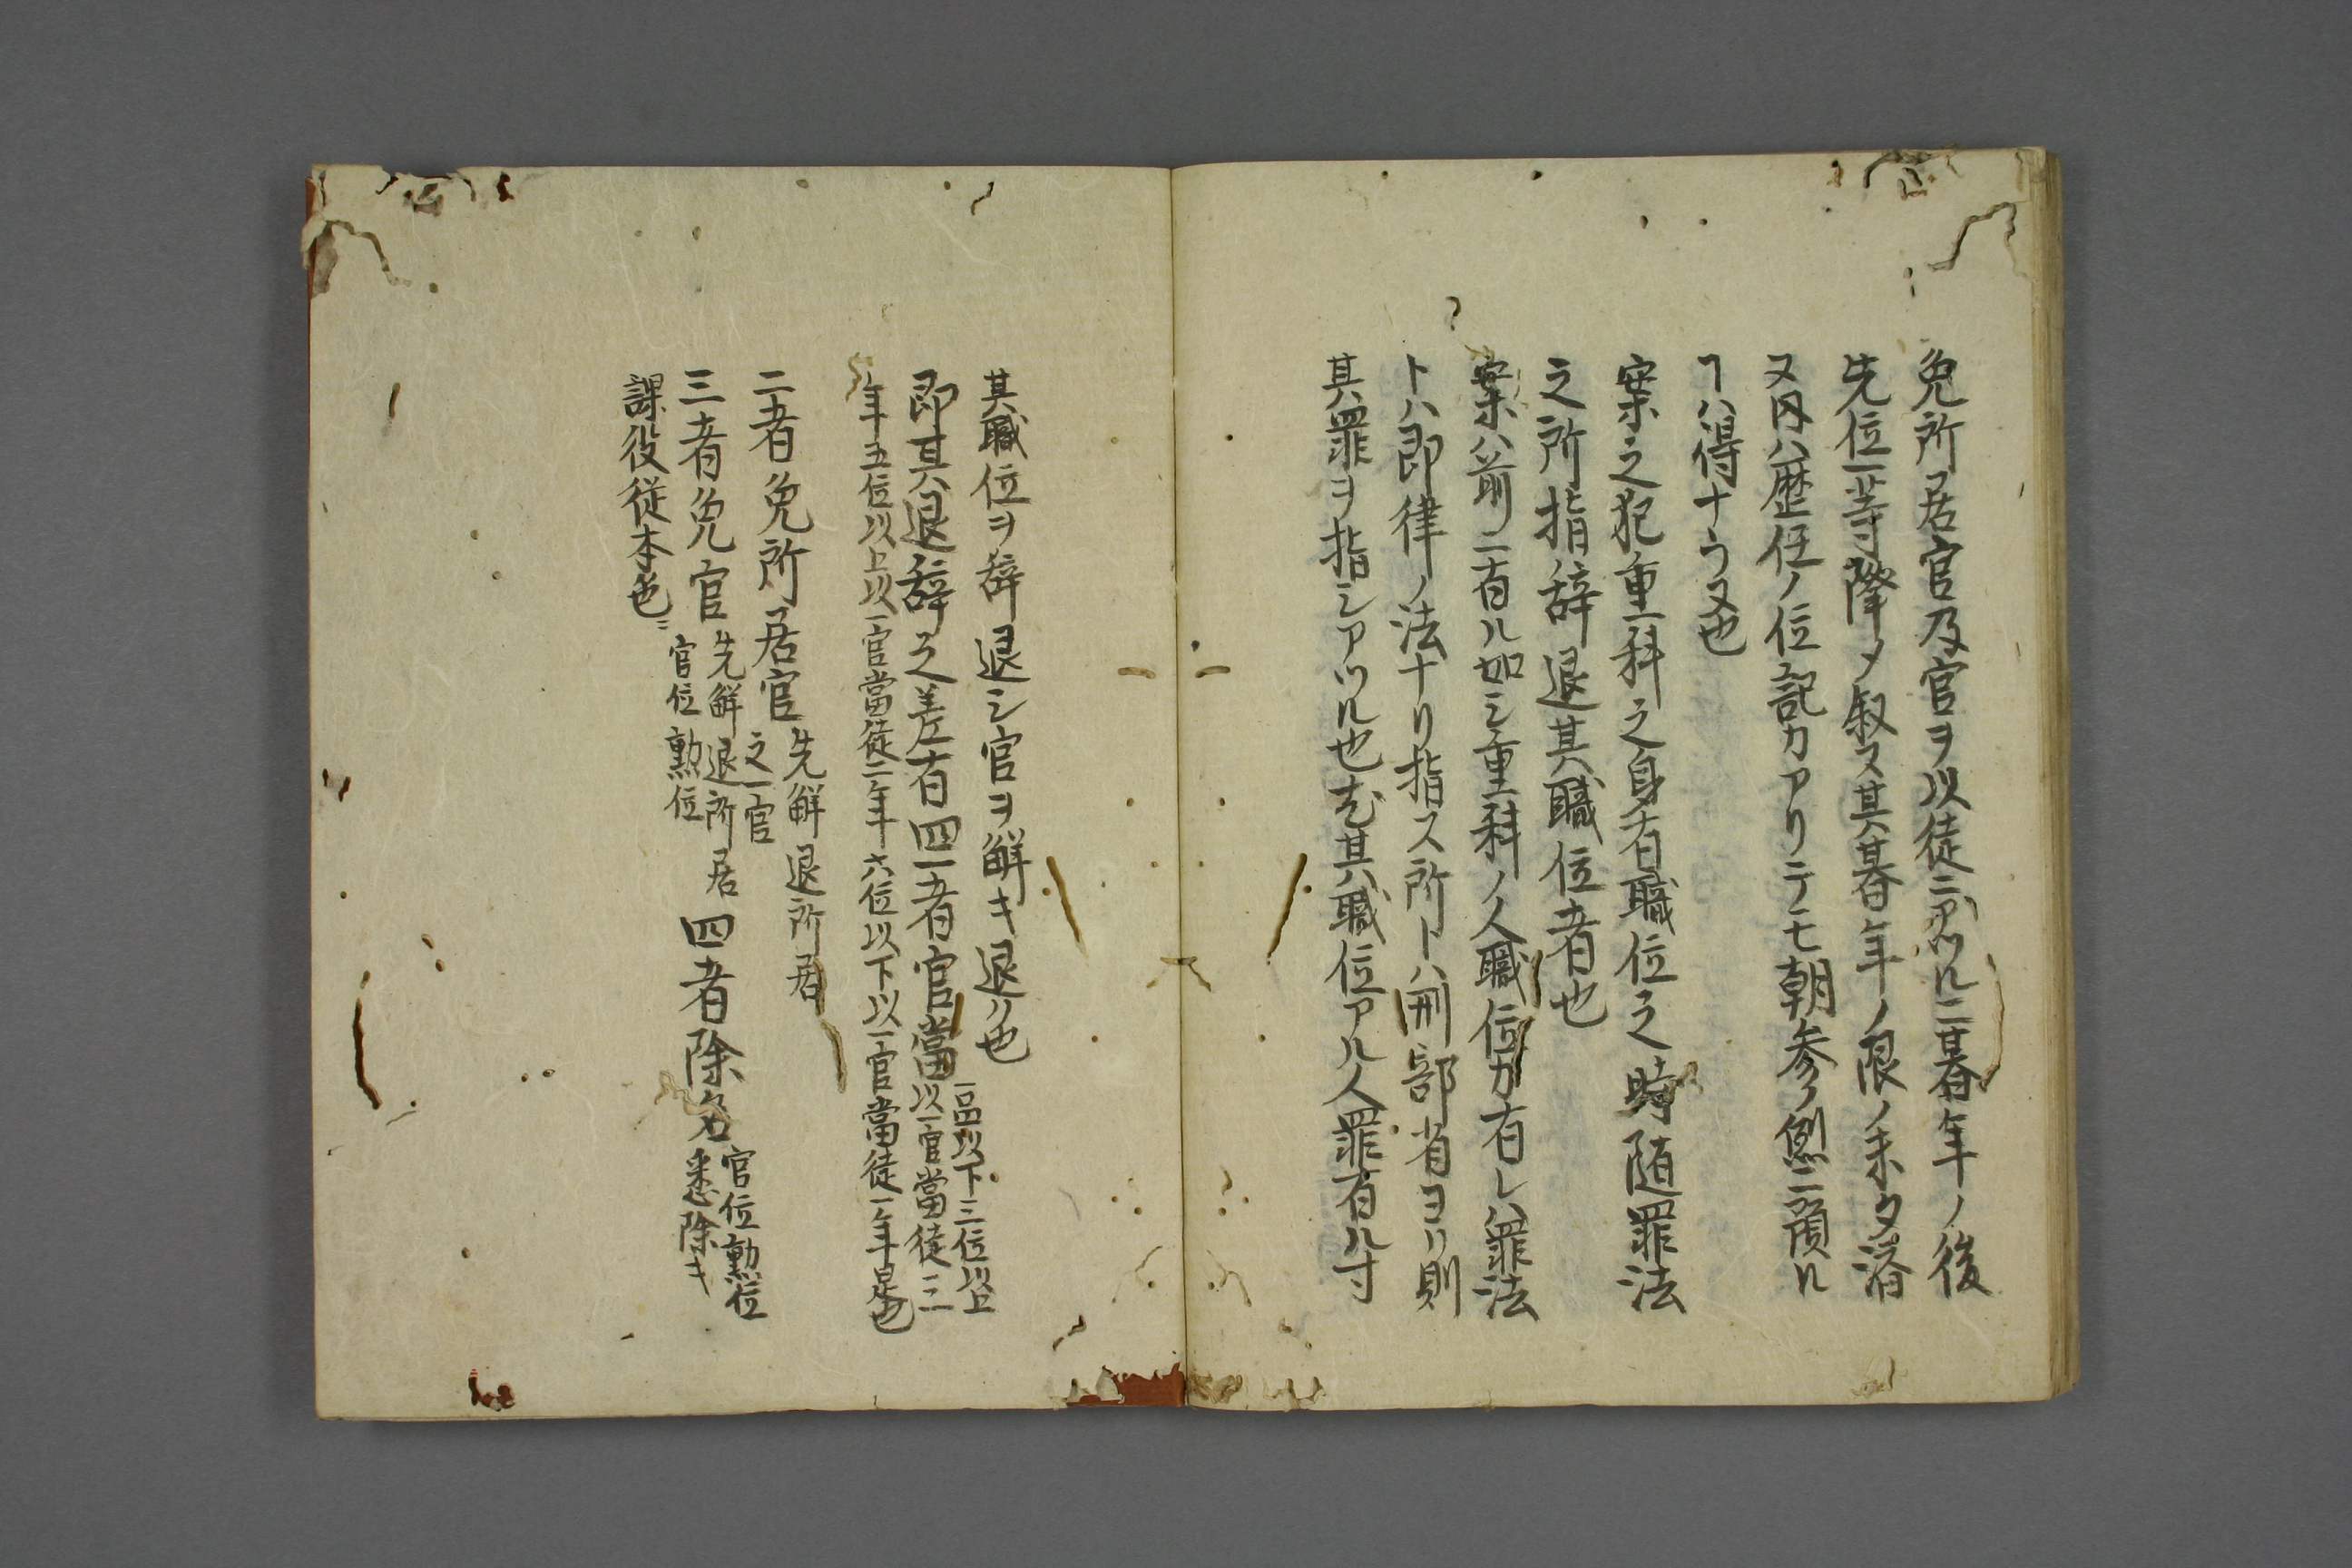 免所居官及官ヲ以徒ニアツルニ暮年ノ後
先位一等降メ叙ス其暮年ノ限ノ未タ済
又内ハ歴任ノ位記カアリテモ朝参ノ例ニ預ル
ヿハ得ナラヌ也
案之犯重科之身有職位之時随罪法
之所指辞退其職位者也
案ハ前ニ有ル如シ重科ノ人職位カ有レハ罪法
トハ即律ノ法ナリ指ス所トハ刑部省ヨリ則
其罪ヲ指シアツル也其職位アル人罪有ル寸
其職位ヲ辞退シ官ヲ解キ退ソ也
即其退辞之差有四一者官當
一品以下三位以上
以一官當徒三
年五位以上以一官當徒二年六位以下以一官當徒一年是也
二者免所居官
先解退所居
之一官
三者免官
先解退所居
官位勲位
四者除名
官位勲位
悉除キ
課役従本色ニ